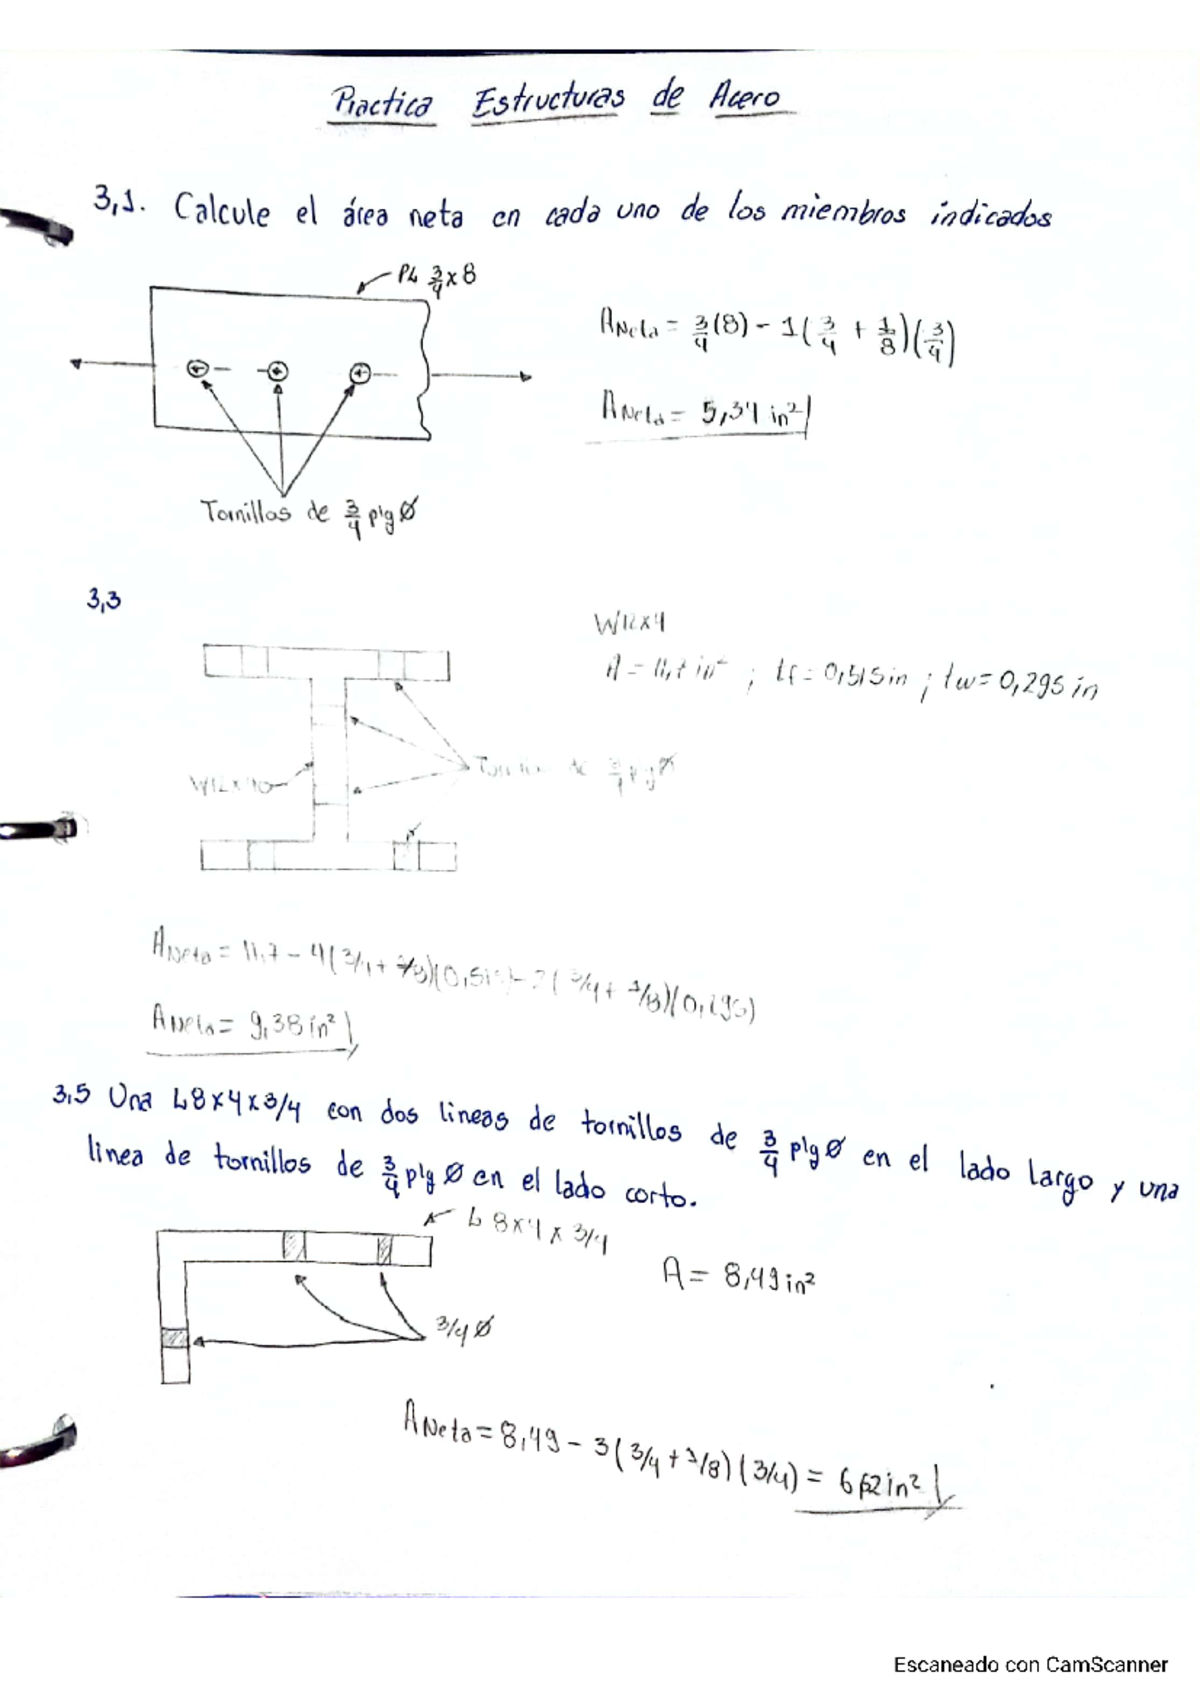 Practica Estructuras de Acero
3,1. Calcule el área neta en cada uno de los miembros indicados
PL 3/4 x 8
A Neta = 3/4 (8) - 1 ( 3/4 + 1/8 ) ( 3/4 )
A Neta = 5,34 in²
Tornillos de 3/4 plg Ø
3,3
W12x4
A = 11,7 in² ; tf = 0,515 in ; tw = 0,295 in
W12x40
Tornillos de 3/4 plg Ø
A Neta = 11,7 - 4 ( 3/4 + 1/8 ) (0,515) - 2 ( 3/4 + 1/8 ) (0,295)
A Neta = 9,38 in²
3,5 Una L8x4x3/4 con dos lineas de tornillos de 3/4 plg Ø en el lado largo y una
linea de tornillos de 3/4 plg Ø en el lado corto.
L 8x4 x 3/4
A = 8,49 in²
3/4 Ø
A Neta = 8,49 - 3 ( 3/4 + 1/8 ) ( 3/4 ) = 6,52 in²
Escaneado con CamScanner